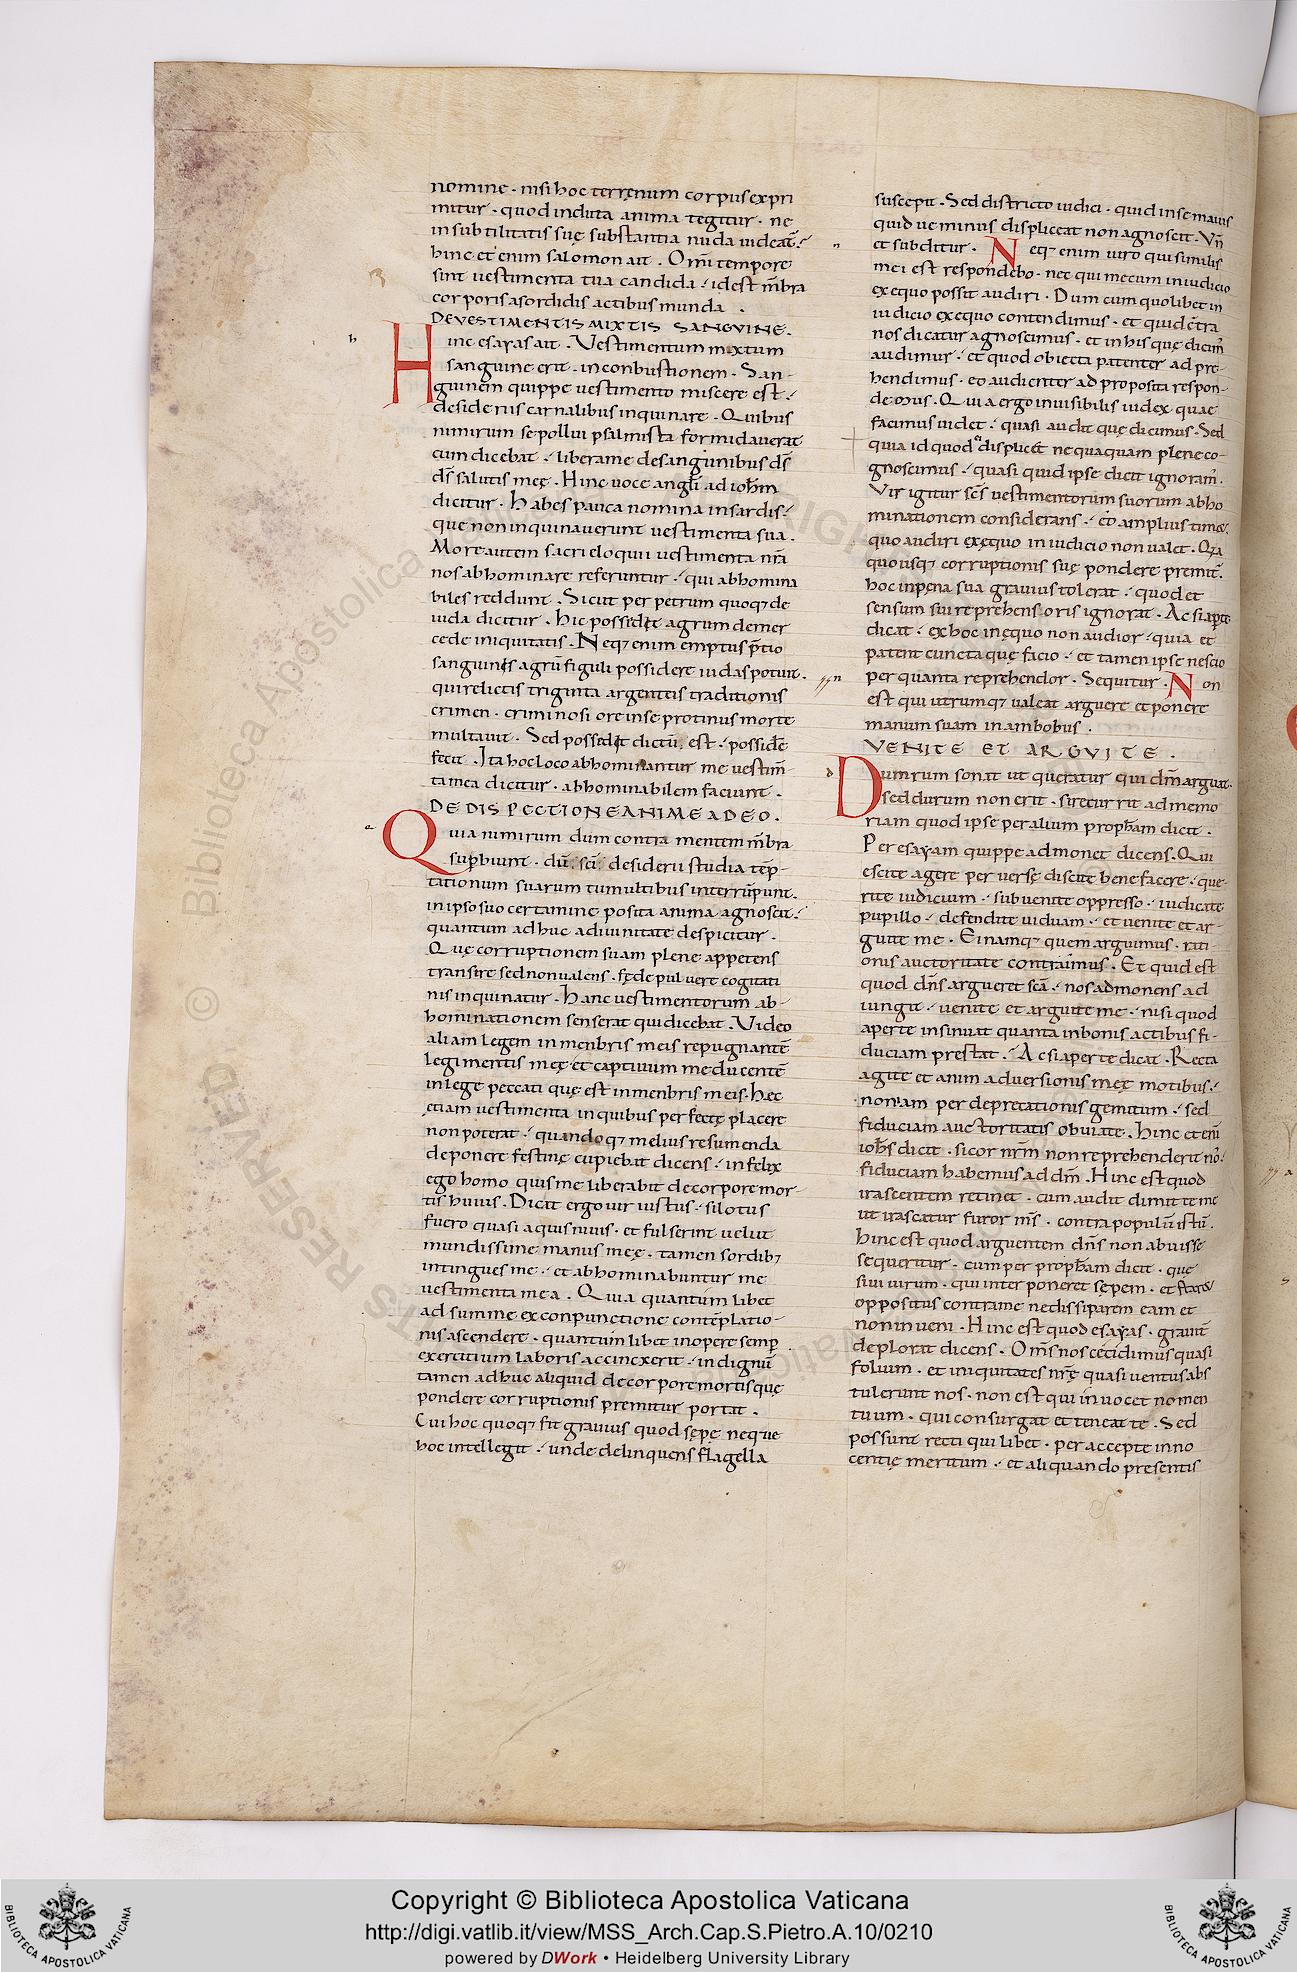 nomine · nisi hoc terręnum corpus expri
mitur · quod induta anima tegitur · ne
in subtilitatis suę substantia nuda uideat̄ ·
hinc et enim salomon ait . Om̄i tempore
sint uestimenta tua candida · idest m̄bra
corporis a sordidis actibus munda .
DE VESTIMENTIS MIXTIS SANGVINE .
Hinc esayas ait . Vestimentum mixtum
sanguine erit · in conbustionem . San-
guinem quippe uestimento miscere est ·
desideriis carnalibus inquinare . Quibus
nimirum se pollui psalmista formidauerat
cum dicebat · libera me de sanguinibus ds̄
ds̄ salutis meę . Hinc uoce angl̄i ad ioh̄m
dicitur . Habes pauca nomina in sardis ·
que non inquinauerunt uestimenta sua .
More autem sacri eloquii uestimenta nr̄a
nos abhominare referuntur · qui abhomina
biles reddunt . Sicut per petrum quoq; de
iuda dicitur . hic possedit agrum de mer
cede iniquitatis . Neq; enim emptus p̄tio
sanguinis agrū figuli possidere iudas potuit .
qui relictis triginta argenteis traditionis
crimen · criminosi ore in se protinus morte
multauit . Sed possedit dictū est · possidē
fecit . Ita hoc loco abhominantur me uestim̄-
ta mea dicitur · abhominabilem faciunt .
DE DISPECTIONE ANIME A DEO .
Quia nimirum dum contra mentem m̄bra
sup̄biunt · dū · scī · desiderii studia tēp-
tationum suarum tumultibus interrūpunt ·
in ipso suo certamine posita anima agnoscit ·
quantum adhuc a diuinitate despicitur .
Quę corruptionem suam plene appetens
transire sed non ualens · fęde puluere cogitati
nis inquinatur . Hanc uestimentorum ab-
hominationem senserat qui dicebat . Video
aliam legem in menbris meis repugnantē
legi mentis meę et captiuum me ducentē
in lege peccati quę est in menbris meis . Hęc
etiam uestimenta in quibus perfectę placere
non poterat · quandoq; melius resumenda
deponere festinę cupiebat dicens · infelix
ego homo quis me liberabit de corpore mor-
tis huius . Dicit ergo uir iustus · si lotus
fuero quasi aquis niuis · et fulserint uelut
mundissime manus meę · tamen sordib;
intingues me · et abhominabuntur me
uestimenta mea . Quia quantum libet
ad summe ex conpunctione contēplatio-
nis ascendere · quantum libet in opere semp̄
exercitium laboris accinxerit · in dignū
tamen adhuc aliquid de corpore mortis quę
pondere corruptionis premitur portat .
Cui hoc quoq; fit grauius quod sępe neque
hoc intellegit · unde delinquens flagella
suscepit . Sed districto iudici · quid in se maius
quid ue minus displiceat non agnoscit . Vn̄
et subditur . Neq; enim uiro qui similis
mei est respondebo · nec qui mecum in iudicio
ex equo possit audiri . Dum cum quolibet in
iudicio ex equo contendimus · et quid c̄tra
nos dicatur agnoscimus · et in his quę dicim̄
audimur · et quod obiecta patenter adpre-
hendimus · eo audienter ad proposita respon-
demus . Quia ergo inuisibilis iudex quae
facimus uidet · quasi audit quę dicimus . Sed
quia id quod displicet nequaquam plene co-
gnoscimus · quasi quid ipse dicit ignoram̄ .
Vir igitur scs̄ uestimentorum suorum abho
minationem considerans · eo amplius timeę
quo audiri exequo in iudicio non ualet . Q̄a
quo usq; corruptionis suę pondere premit̄ .
hoc in pęna sua grauius tolerat · quod et
sensum sui reprehensoris ignorat . Ac si ap̄te
dicat · ex hoc inequo non audior · quia et
patent cuncta quę facio · et tamen ipse nescio
per quanta reprehendor . Sequitur . Non
est qui utrumq; ualeat arguere et ponere
manum suam in ambobus .
VENITE ET ARGVITE .
Dumrum sonat ut queratur qui dm̄ arguat .
sed durum non erit · si recurrit ad memo
riam quod ipse per alium proph̄am dicit .
Per esayam quippe admonet dicens . Qui
escite agere peruerse discite benefacere · que-
rite iudicium · subuenite oppresso · iudicate
pupillo · defendite uiduam · et uenite et ar-
guite me . Ei namq; quem arguimus · rati
onis auctoritate contraimus . Et quid est
quod dn̄s argueret scā · nos admonens ad
iungit · uenite et arguite me · nisi quod
aperte insinuat quanta in bonis actibus fi-
duciam prestat . Ac si aperte dicat . Recta
agite et animaduersionis meę motibus ·
non iam per deprecationis gemitum · sed
fiduciam auctoritatis obuiate . Hinc et eni
ioh̄s dicit · si cor nr̄m non reprehenderit nos ·
fiduciam habemus ad dm̄ . Hinc est quod
irascentem retinet · cum audit dimitte me
ut irascatur furor ms̄ · contra populū istū .
hinc est quod arguentem dn̄s non abuisse
sequeritur · cum per proph̄am dicit · que
siui uirum · qui interponeret sępem · et staret
oppositus contra me ne dissiparem eam et
non inueni . Hinc est quod esayas · grauit̄
deplorat dicens . Om̄s nos cecidimus quasi
folium · et iniquitates nr̄ę quasi uentus abs
tulerunt nos · non est qui inuocet nomen
tuum · qui consurgat et teneat te . Sed
possunt recti qui libet · per accepte inno
centię meritum · et aliquando presentis
Copyright © Biblioteca Apostolica Vaticana
http://digi.vatlib.it/view/MSS_Arch.Cap.S.Pietro.A.10/0210
powered by DWork • Heidelberg University Library